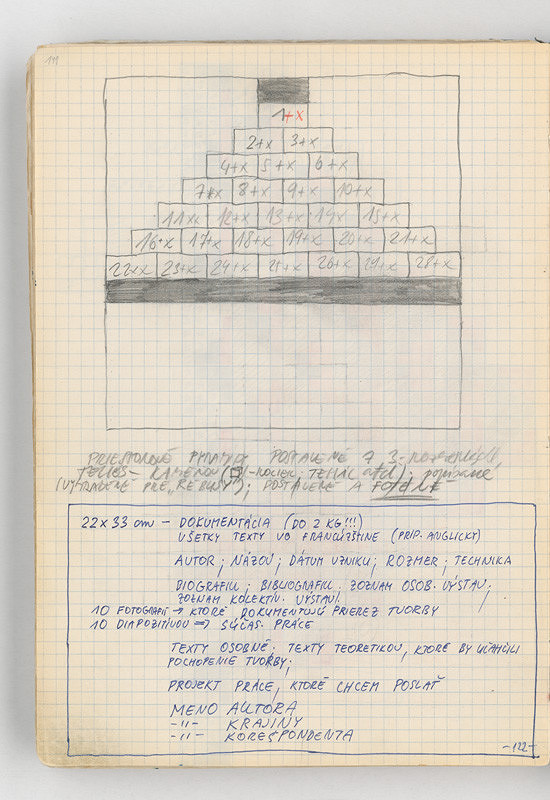 1+x
2+x 3+x
4+x 5+x 6+x
7+x 8+x 9+x 10+x
11+x 12+x 13+x 14+x 15+x
16+x 17+x 18+x 19+x 20+x 21+x
22+x 23+x 24+x 25+x 26+x 27+x 28+x
PRIESTOROVÉ POSTAVENÉ Z 3-
TELIES - KAMEŇOV ( -KOCIEK, TEHÁL atď);
(VYHRADENÉ PRE „ "); POSTAVENÉ A
22 x 33 cm – DOKUMENTÁCIA (DO 2 KG!!!)
VŠETKY TEXTY VO FRANCÚZŠTINE (PRÍP. ANGLICKY)
AUTOR; NÁZOV; DÁTUM VZNIKU; ROZMER; TECHNIKA
BIOGRAFIU; BIBLIOGRAFIU. ZOZNAM OSOB. VÝSTAV;
ZOZNAM KOLEKTÍV. VÝSTAV.
10 FOTOGRAFIÍ → KTORÉ DOKUMENTUJÚ PRIEREZ TVORBY
10 DIAPOZITÍVOV ⇒ SÚČAS. PRÁCE
TEXTY OSOBNÉ; TEXTY TEORETIKOV, KTORÉ BY UĽAHČILI
POCHOPENIE TVORBY;
PROJEKT PRÁCE, KTORÉ CHCEM POSLAŤ
MENO AUTORA
-"- KRAJINY
-"- KOREŠPONDENTA
-122-